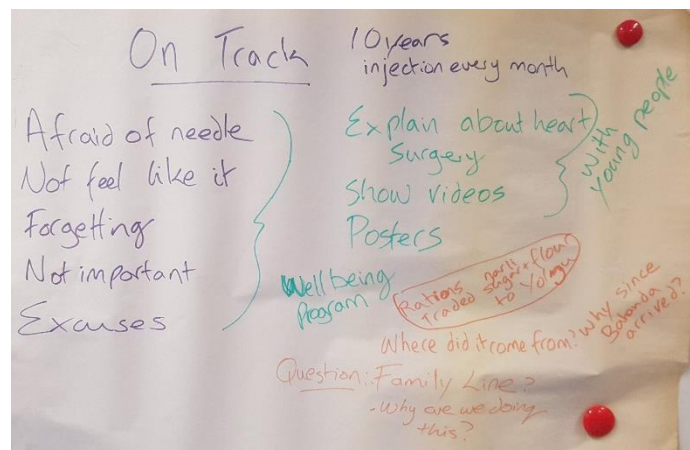 On Track
10 years
injection every month
Afraid of needle
Not feel like it
Forgetting
Not important
Excuses
Explain about heart
Surgery
Show videos
Posters
With
young people
Wellbeing
Program
Rations narli
sugar + flour
Traded to Yolŋu
Where did it come from? Why since
Balanda
arrived?
Question: Family Line?
- Why are we doing
this?